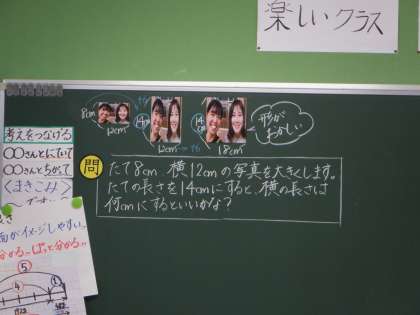 楽しいクラス
8cm
12cm
14cm
+6
12cm
+6
14cm
18cm
形が
おかしい
考えをつなげる
〇〇さんとにていて
〇〇さんとちがって
〈まきこみ〉
問
たて8cm、横12cmの写真を大きくします。
たての長さを14cmにすると、横の長さは
何cmにするといいかな？
面がイメージしやすい
分かる
ぱっと分かる
⑤
④
①